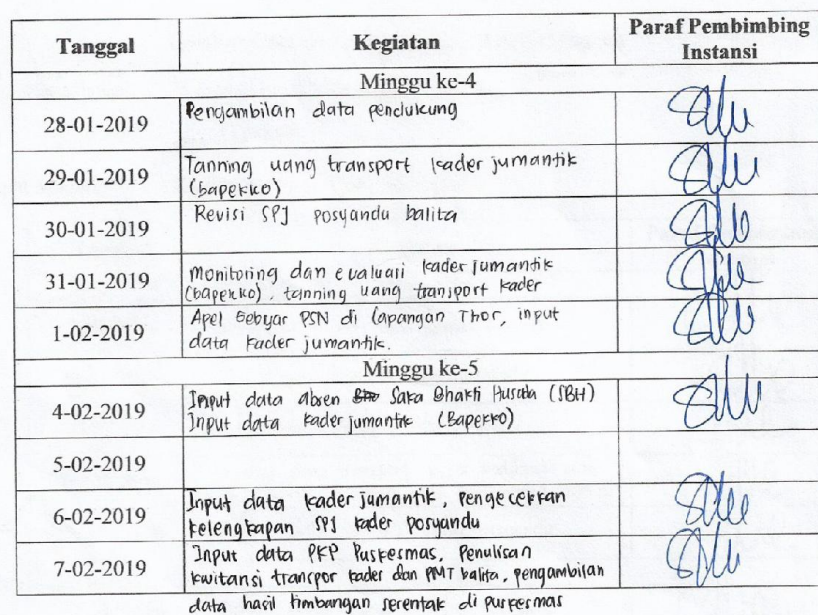 Tanggal Kegiatan Paraf Pembimbing
Instansi
Minggu ke-4
28-01-2019 Pengambilan data pendukung
29-01-2019 Tanning uang transport kader jumantik
(bapekko)
30-01-2019 Revisi SPJ posyandu balita
31-01-2019 Monitoring dan evaluasi kader jumantik
(bapekko), tanning uang transport kader
1-02-2019 Apel Gebyar PSN di lapangan Thor, input
data kader jumantik.
Minggu ke-5
4-02-2019 Input data absen Saka Bhakti Husada (SBH)
Input data kader jumantik (Bapekko)
5-02-2019
6-02-2019 Input data kader jumantik, pengecekkan
kelengkapan SPJ kader posyandu
7-02-2019 Input data PKP Puskesmas, Penulisan
kwitansi transpor kader dan PMT balita, pengambilan
data hasil timbangan serentak di puskesmas